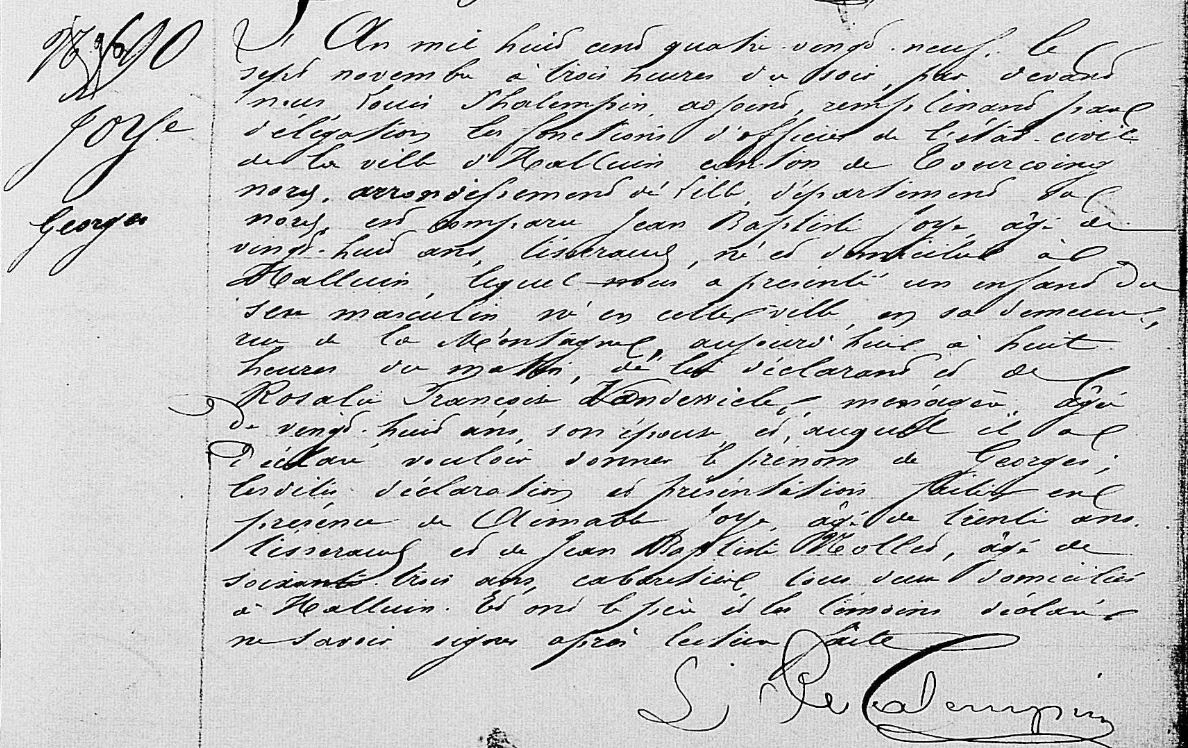 Joye
Georges
L'An mil huit cent quatre-vingt-neuf, le
sept novembre à trois heures du soir, par devant
nous Louis adjoint, remplissant par
délégation les fonctions d'officier de l'état-civil
de la ville d'Halluin canton de Tourcoing
nord, arrondissement de Lille, département du
nord, est comparu Jean Baptiste Joye, âgé de
vingt-huit ans, tisserand, né et domicilié à
Halluin, lequel nous a présenté un enfant du
sexe masculin né en cette ville, en sa demeure,
rue de la Montagne, aujourd'hui à huit
heures du matin, de lui déclarant et de
Rosalie Françoise ménagère, âgée
de vingt-huit ans, son épouse, et, auquel il a
déclaré vouloir donner le prénom de Georges;
lesdites déclaration et présentation faites en
présence de Aimable Joye, âgé de trente ans,
tisserand et de Jean Baptiste âgé de
soixante trois ans, cabaretier tous deux domiciliés
à Halluin. Et ont le père et les témoins déclaré
ne savoir signer après lecture faite